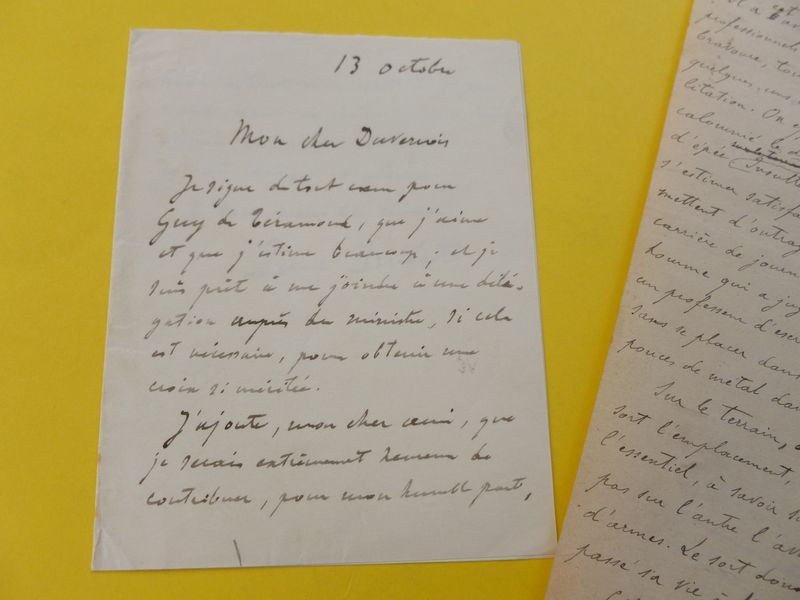 13 octobre
Mon cher Duvernois
Je signe de tout cœur pour
Guy de Téramond, que j'aime
et que j'estime beaucoup; et je
suis prêt à me joindre à une délé-
gation auprès du ministre, si cela
est nécessaire, pour obtenir une
croix si méritée.
J'ajoute, mon cher ami, que
je serais extrêmement heureux de
contribuer, pour mon humble part,
professionnels
bravoure, tou
quelques-uns
litation. On
calomnié le d
d'épée Insult
s'estimer satisfa
mettent d'outrag
carrière de journ
homme qui a jug
un professeur d'escr
sans se placer dans
pouces de métal dan
Sur le terrain,
sort l'emplacement,
l'essentiel, à savoir s
pas sur l'autre l'av
d'armes. Le sort donc
passé sa vie à